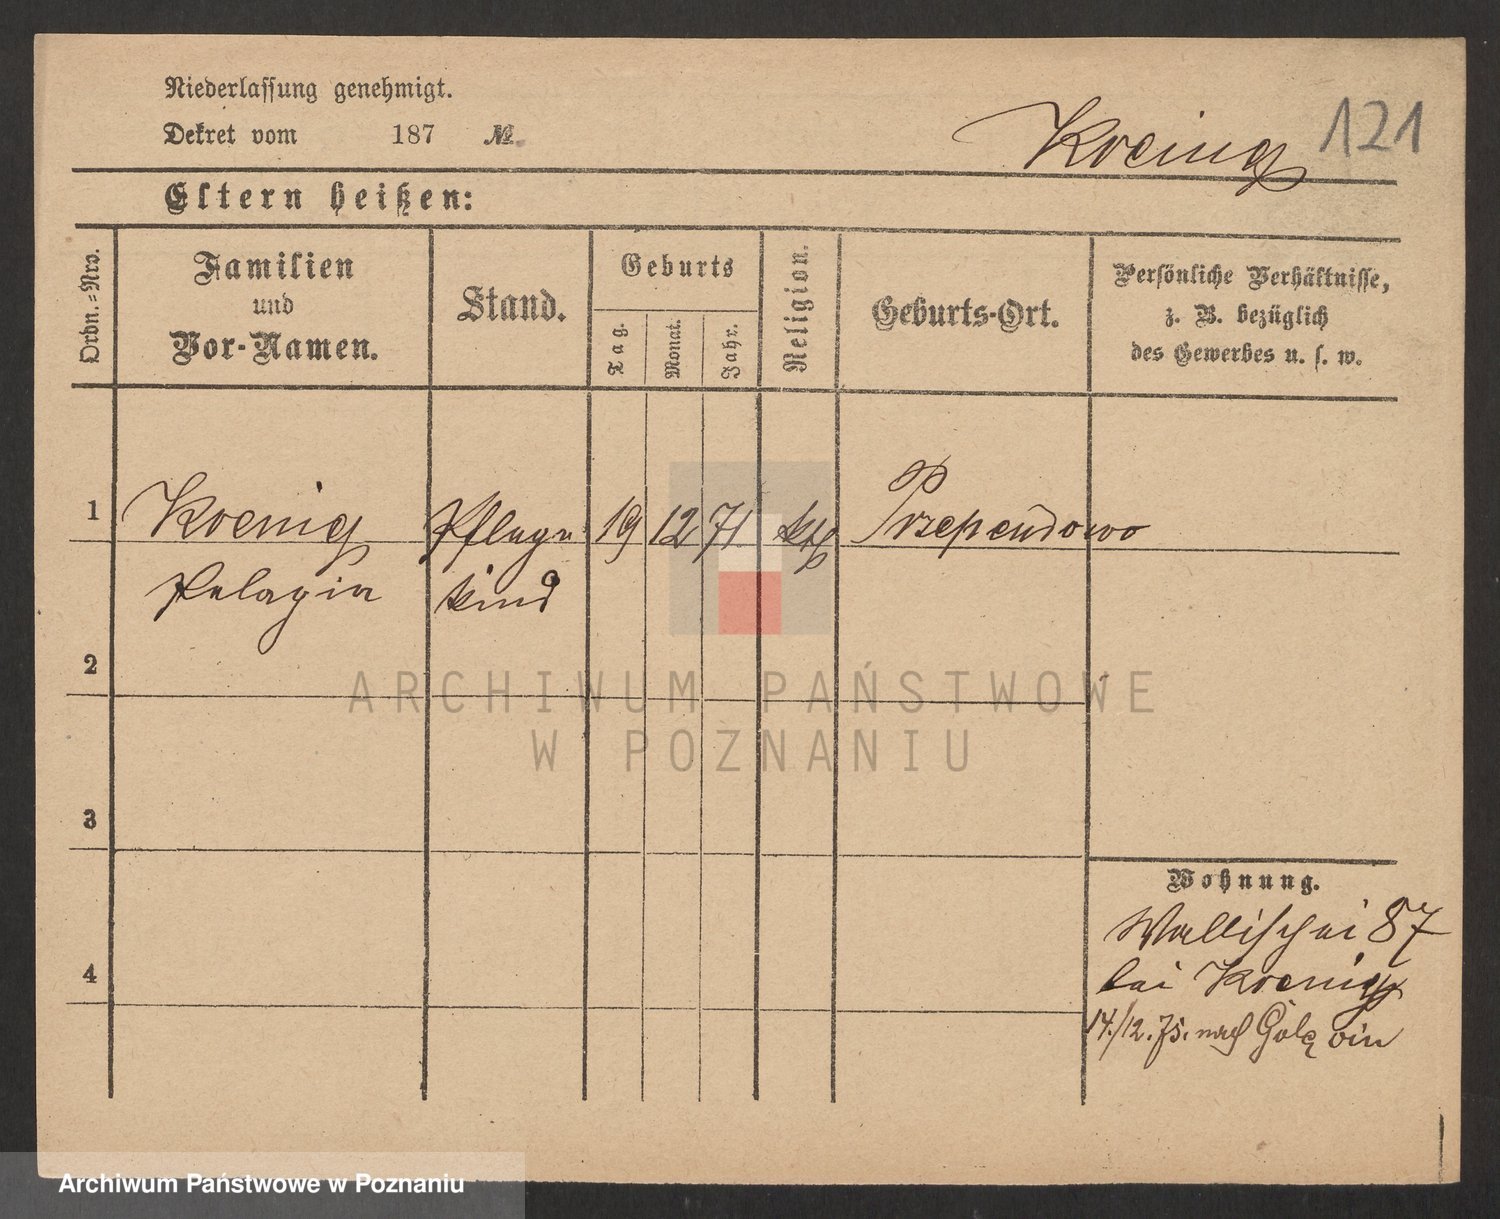 Niederlassung genehmigt.
Dekret vom 187 №.
Koenig 121
Eltern heißen:
Ordn.=Nro.
Familien
und
Vor-Namen.
Stand.
Geburts
Tag.
Monat.
Jahr.
Religion.
Geburts-Ort.
Persönliche Verhältnisse,
z. B. bezüglich
des Gewerbes u. s. w.
1 Koenig Pflege 19 12 71 kth Przependowo
Pelagia kind
2
ARCHIWUM PAŃSTWOWE
W POZNANIU
3
Wohnung.
Wallischei 87
4
bei Koenig
14./12. 75. nach
Archiwum Państwowe w Poznaniu